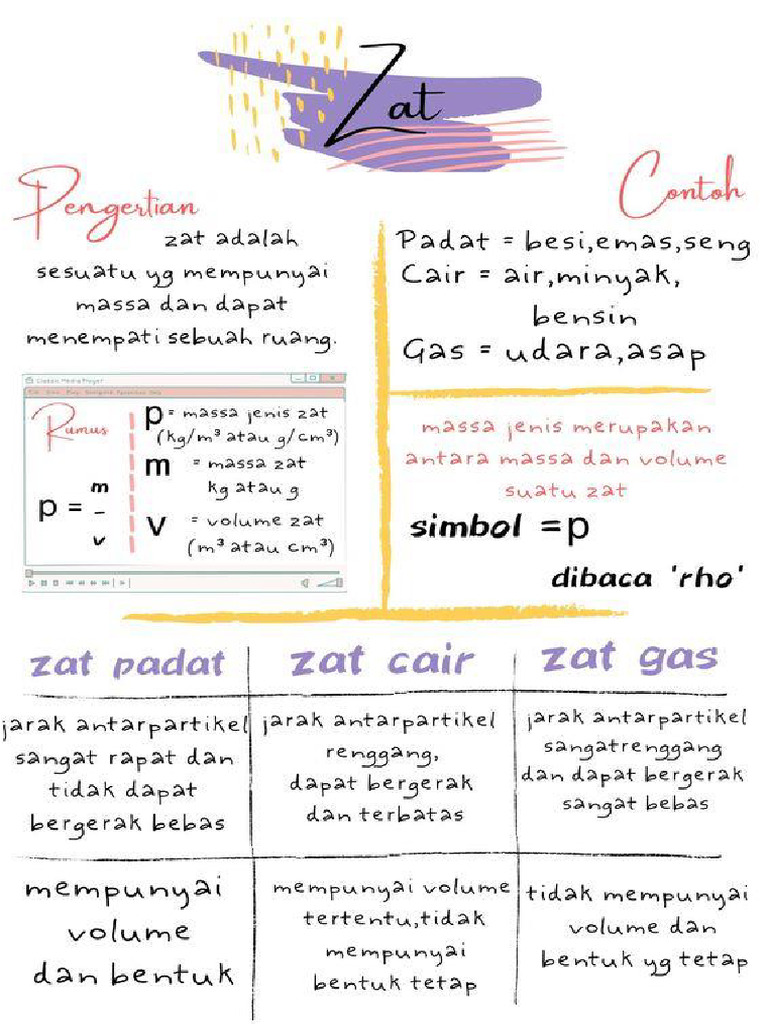 Zat
Pengertian
zat adalah
sesuatu yg mempunyai
massa dan dapat
menempati sebuah ruang.
Contoh
Padat = besi,emas,seng
Cair = air,minyak,
bensin
Gas = udara,asap
Classic Media Player
Rumus
p =
m
–
v
p = massa jenis zat
(kg/m³ atau g/cm³)
m = massa zat
kg atau g
v = volume zat
(m³ atau cm³)
massa jenis merupakan
antara massa dan volume
suatu zat
simbol =p
dibaca 'rho'
zat padat
zat cair
zat gas
jarak antarpartikel
sangat rapat dan
tidak dapat
bergerak bebas
jarak antarpartikel
renggang,
dapat bergerak
dan terbatas
jarak antarpartikel
sangatrenggang
dan dapat bergerak
sangat bebas
mempunyai
volume
dan bentuk
mempunyai volume
tertentu,tidak
mempunyai
bentuk tetap
tidak mempunyai
volume dan
bentuk yg tetap